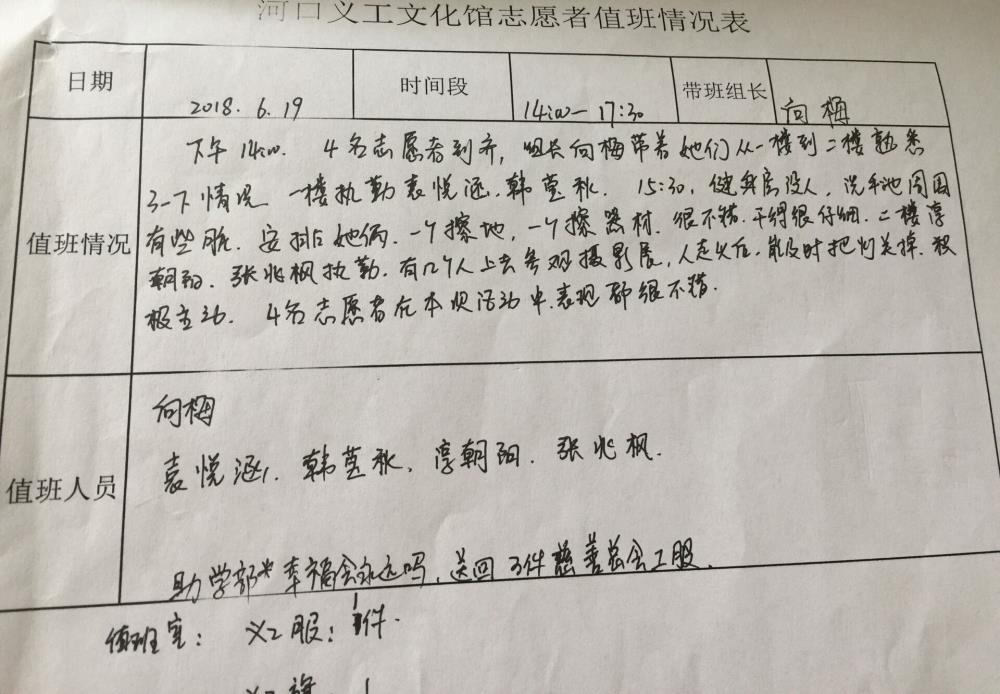 河口义工文化馆志愿者值班情况表
日期 2018.6.19 时间段 14:00—17:30 带班组长 向梅
值班情况
下午14:00. 4名志愿者到齐,组长向梅带着她们从一楼到二楼熟悉
了一下情况 一楼执勤袁悦涵.韩莹秋. 15:30,健身房没人,洗手池周围
有些脏.安排她俩.一个擦地,一个擦器材.很不错.干得很仔细.二楼淳
朝阳.张兆枫执勤.有几个人上去参观摄影展,人走火后.能及时把灯关掉.积
极主动. 4名志愿者在本次活动中.表现都很不错.
值班人员
向梅
袁悦涵.韩莹秋.淳朝阳.张兆枫.
助学部*幸福会永远吗,送回3件慈善总会工服.
值班室: 义工服:1件.
义工旗 1